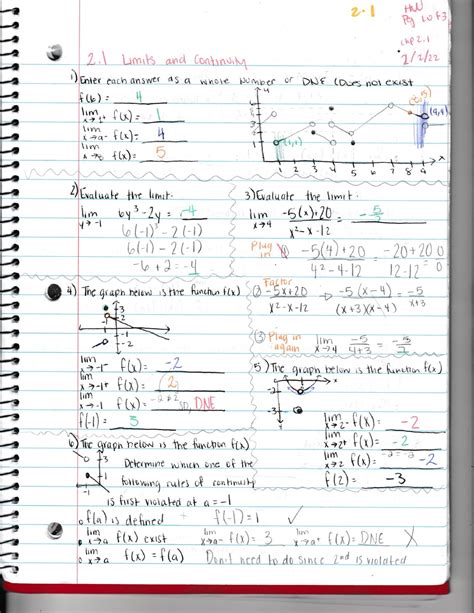 2.1
HW
Pg 1 of 3
chp 2.1
2/2/22
2.1 Limits and Continuity
1) Enter each answer as a whole number or DNE (Does not exist
f(6) = 4
lim f(x) = 1
lim x→a- f(x) = 4
lim f(x) = 5
(1,1)
(9,4)
1 2 3 4 5 6 7 8 9 x
2) Evaluate the limit.
lim y→-1 6y³-2y = -4
6(-1)³-2(-1)
6(-1)-2(-1)
-6+2=-4
3) Evaluate the limit
lim x→4 -5(x)+20 / x²-x-12 = -5/7
Plug in ① -5(4)+20 / 4²-4-12 = -20+20 / 12-12 = 0/0
Factor
② -5x+20 / x²-x-12 = -5(x-4) / (x+3)(x-4) = -5 / x+3
③ Plug in again lim x→4 -5 / 4+3 = -5/7
4) The graph below is the function f(x)
lim x→-1- f(x) = -2
lim x→-1+ f(x) = 2
lim x→-1 f(x) = -2≠2 so, DNE
f(-1) = 3
5) The graph below is the function f(x)
lim x→2- f(x) = -2
lim x→2+ f(x) = -2
lim x→2 f(x) = -2=-2 -2
f(2) = -3
6) The graph below is the function f(x)
Determine which one of the
following rules of continuity
is first violated at a=-1
f(a) is defined f(-1)=1 ✓
lim x→a f(x) exist lim x→a- f(x)=3 lim x→a+ f(x)=DNE X
lim x→a f(x)=f(a) Don't need to do since 2nd is violated